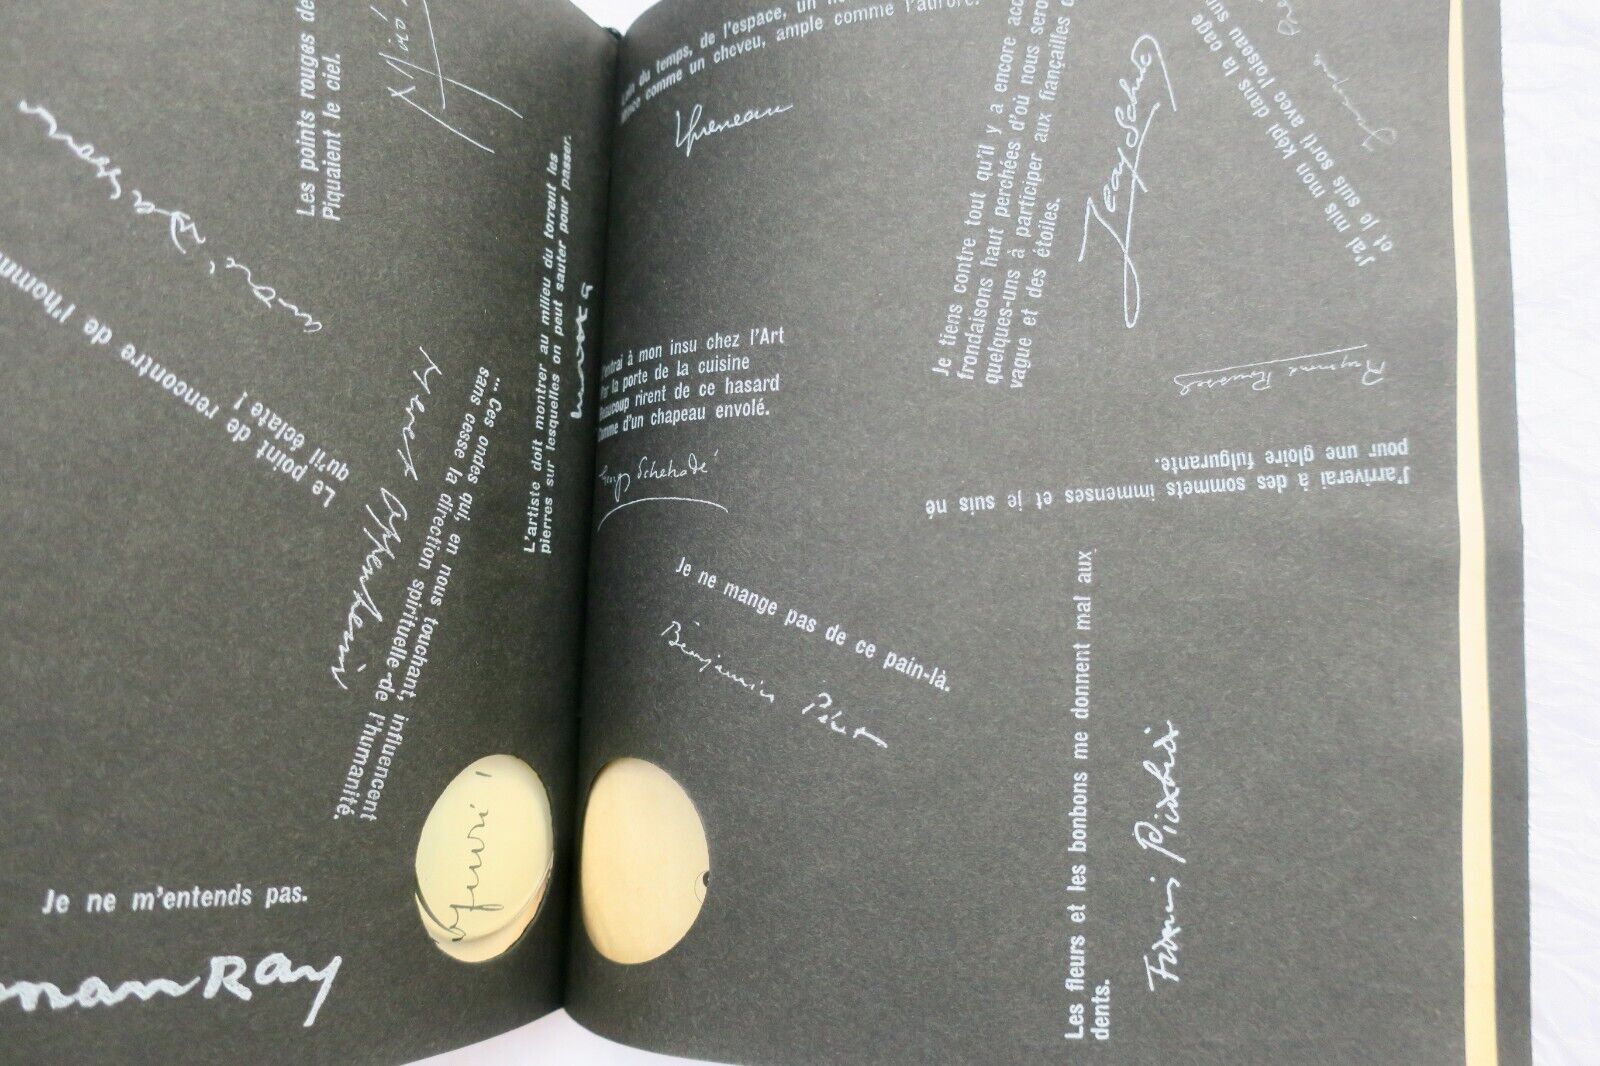 Les points rouges de
Piquaient le ciel.
Miró
André Masson
Le point de rencontre de l'homm
qu'il éclate !
... ces ondes qui, en nous touchant, influencent
sans cesse la direction spirituelle de l'humanité.
Meret Oppenheim
L'artiste doit montrer au milieu du torrent les
pierres sur lesquelles on peut sauter pour passer.
Je ne m'entends pas.
man Ray
du temps, de l'espace, un
comme un cheveu, ample comme l'aurore.
Queneau
Je tiens contre tout qu'il y a encore
frondaisons haut perchées d'où nous
quelques-uns à participer aux fiançailles
vague et des étoiles.
Jean Schuster
J'ai mis mon képi dans la cage
et je suis sorti avec l'oiseau
entrai à mon insu chez l'Art
Par la porte de la cuisine
Beaucoup rirent de ce hasard
Comme d'un chapeau envolé.
Georges Schehadé
Raymond Roussel
J'arriverai à des sommets immenses et je suis né
pour une gloire fulgurante.
Je ne mange pas de ce pain-là.
Benjamin Péret
Les fleurs et les bonbons me donnent mal aux
dents.
Francis Picabia